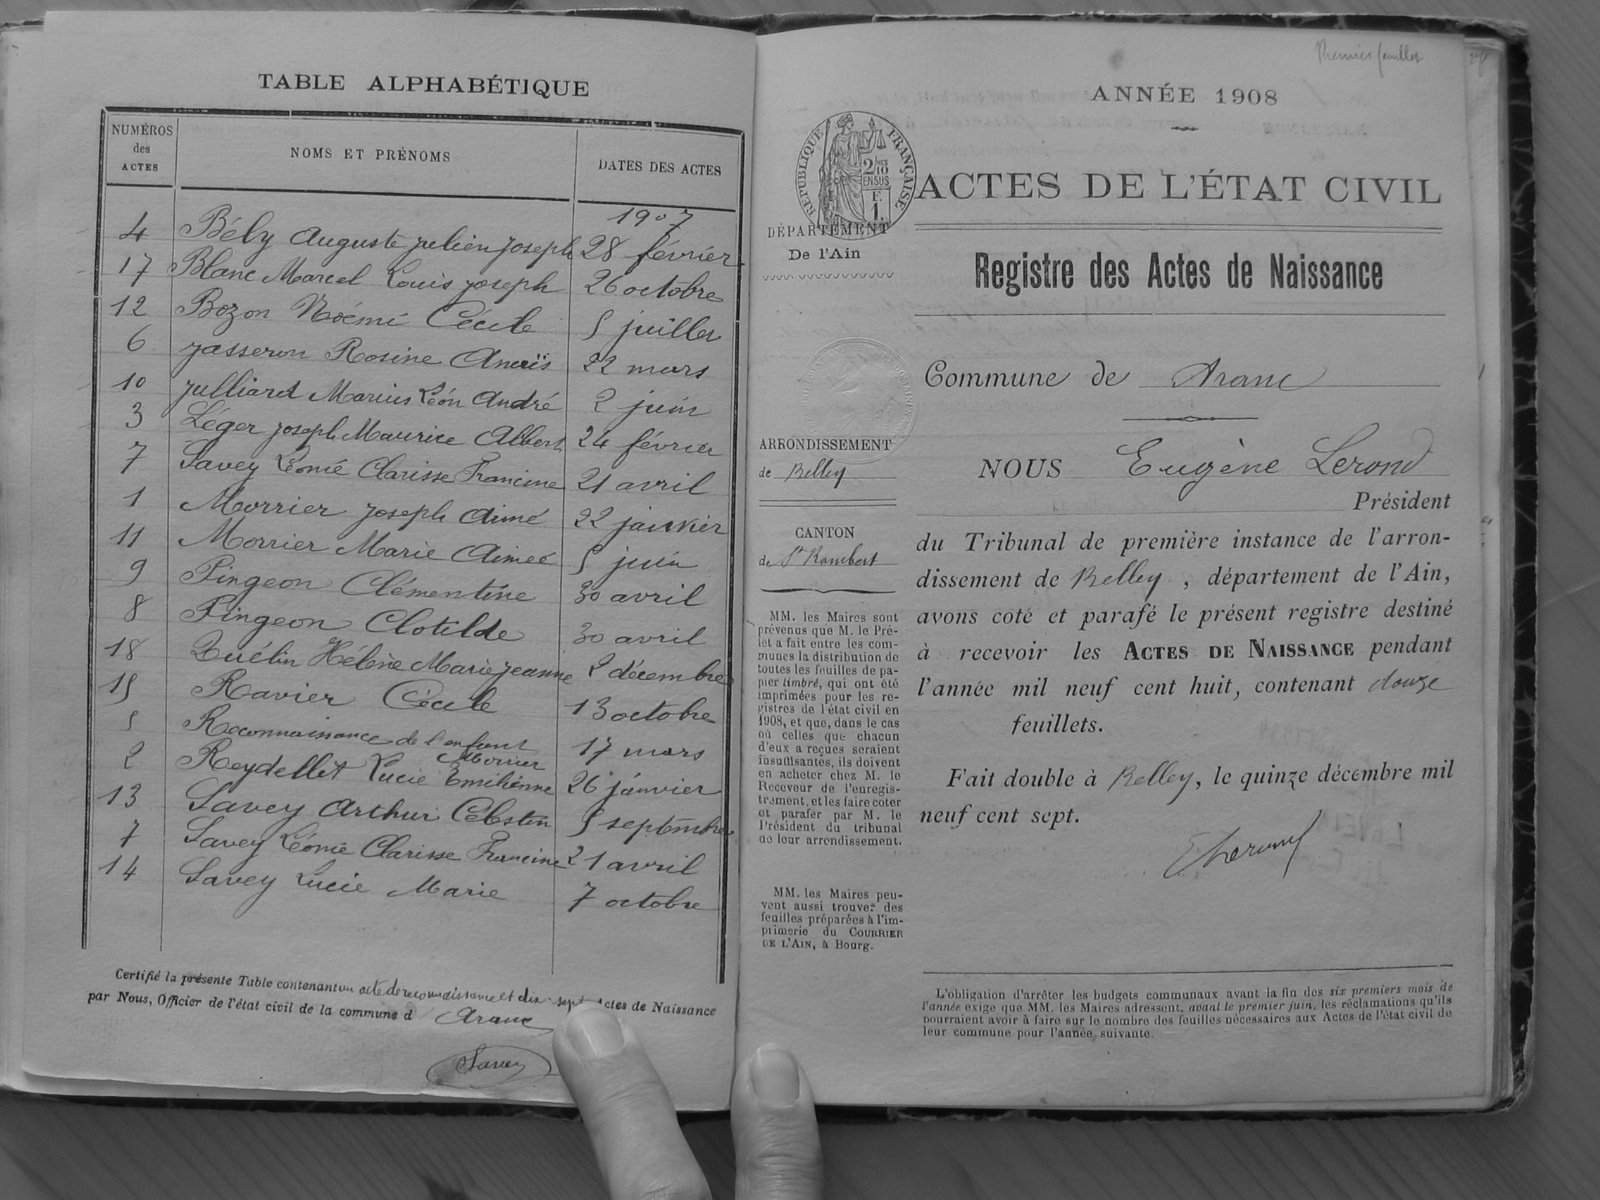 TABLE ALPHABÉTIQUE
NUMÉROS des ACTES
NOMS ET PRÉNOMS
DATES DES ACTES
1907
4 Bély Auguste julien joseph 28 février
17 Blanc Marcel Louis joseph 26 octobre
12 Bozon Noémi Cécile 5 juillet
6 jasseron Rosine Anaïs 22 mars
10 julliard Marius Léon André 2 juin
3 Léger joseph Maurice Albert 24 février
7 Savey Léonie Clarisse Francine 21 avril
1 Morrier joseph Aimé 22 janvier
11 Morrier Marie Aimeé 5 juin
9 Pingeon Clémentine 30 avril
8 Pingeon Clotilde 30 avril
18 Quélin Hélène Marie jeanne 2 décembre
15 Ravier Cécile 13 octobre
5 Reconnaissance de l'enfant Morrier 17 mars
2 Reydellet Lucie Emilienne 26 janvier
13 Savey Arthur Célestin 5 septembre
7 Savey Léonie Clarisse Francine 21 avril
14 Savey Lucie Marie 7 octobre
Certifié la présente Table contenant un acte de reconnaissance et dix sept actes de Naissance
par Nous, Officier de l'état civil de la commune d Aranc
Savey
Premier feuillet
ANNÉE 1908
RÉPUBLIQUE FRANÇAISE
ACTES DE L'ÉTAT CIVIL
DÉPARTEMENT
De l'Ain
Registre des Actes de Naissance
Commune de Aranc
ARRONDISSEMENT
de Belley
CANTON
de St Rambert
MM. les Maires sont
prévenus que M. le Pré-
fet a fait entre les com-
munes la distribution de
toutes les feuilles de pa-
pier timbré, qui ont été
imprimées pour les re-
gistres de l'état civil en
1908, et que, dans le cas
où celles que chacun
d'eux a reçues seraient
insuffisantes, ils doivent
en acheter chez M. le
Receveur de l'enregis-
trement, et les faire coter
et parafer par M. le
Président du tribunal
de leur arrondissement.
MM. les Maires peu-
vent aussi trouver des
feuilles préparées à l'im-
primerie du COURRIER
DE L'AIN, à Bourg.
NOUS Eugène Lerond
Président
du Tribunal de première instance de l'arron-
dissement de Belley, département de l'Ain,
avons coté et parafé le présent registre destiné
à recevoir les ACTES DE NAISSANCE pendant
l'année mil neuf cent huit, contenant douze
feuillets.
Fait double à Belley, le quinze décembre mil
neuf cent sept.
L'obligation d'arrêter les budgets communaux avant la fin des six premiers mois de
l'année exige que MM. les Maires adressent, avant le premier juin, les réclamations qu'ils
pourraient avoir à faire sur le nombre des feuilles nécessaires aux Actes de l'état civil de
leur commune pour l'année suivante.